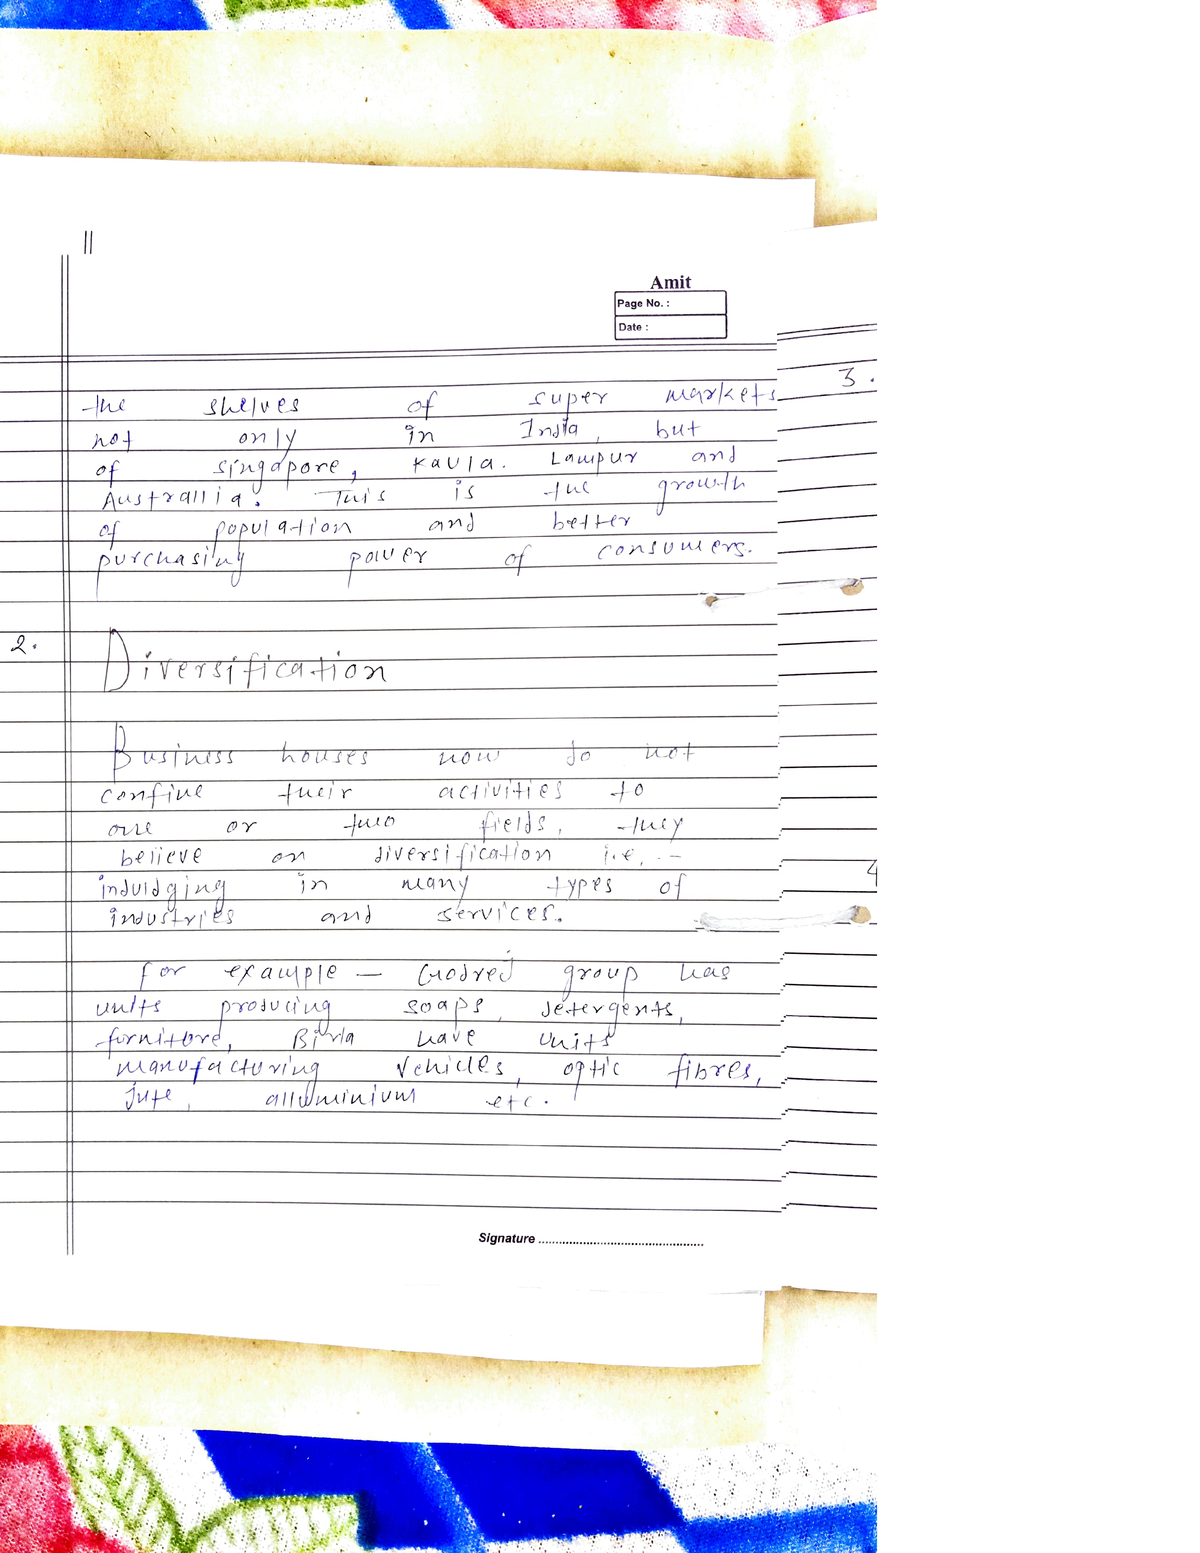 ||
Amit
Page No. :
Date :
3.
the shelves of super markets
not only in India, but
of singapore, Kaula. Lampur and
Australlia. This is the growth
of population and better
purchasing power of consumers.
2.
Diversification
Business houses now do not
confine their activities to
one or two fields, they
believe on diversification i.e, .-
4
induldging in many types of
industries and services.
for example — Godrej group has
units producing soaps, detergents,
furniture, Birla have units
manufacturing vehicles, optic fibres,
jute, alluminium etc.
Signature ................................................